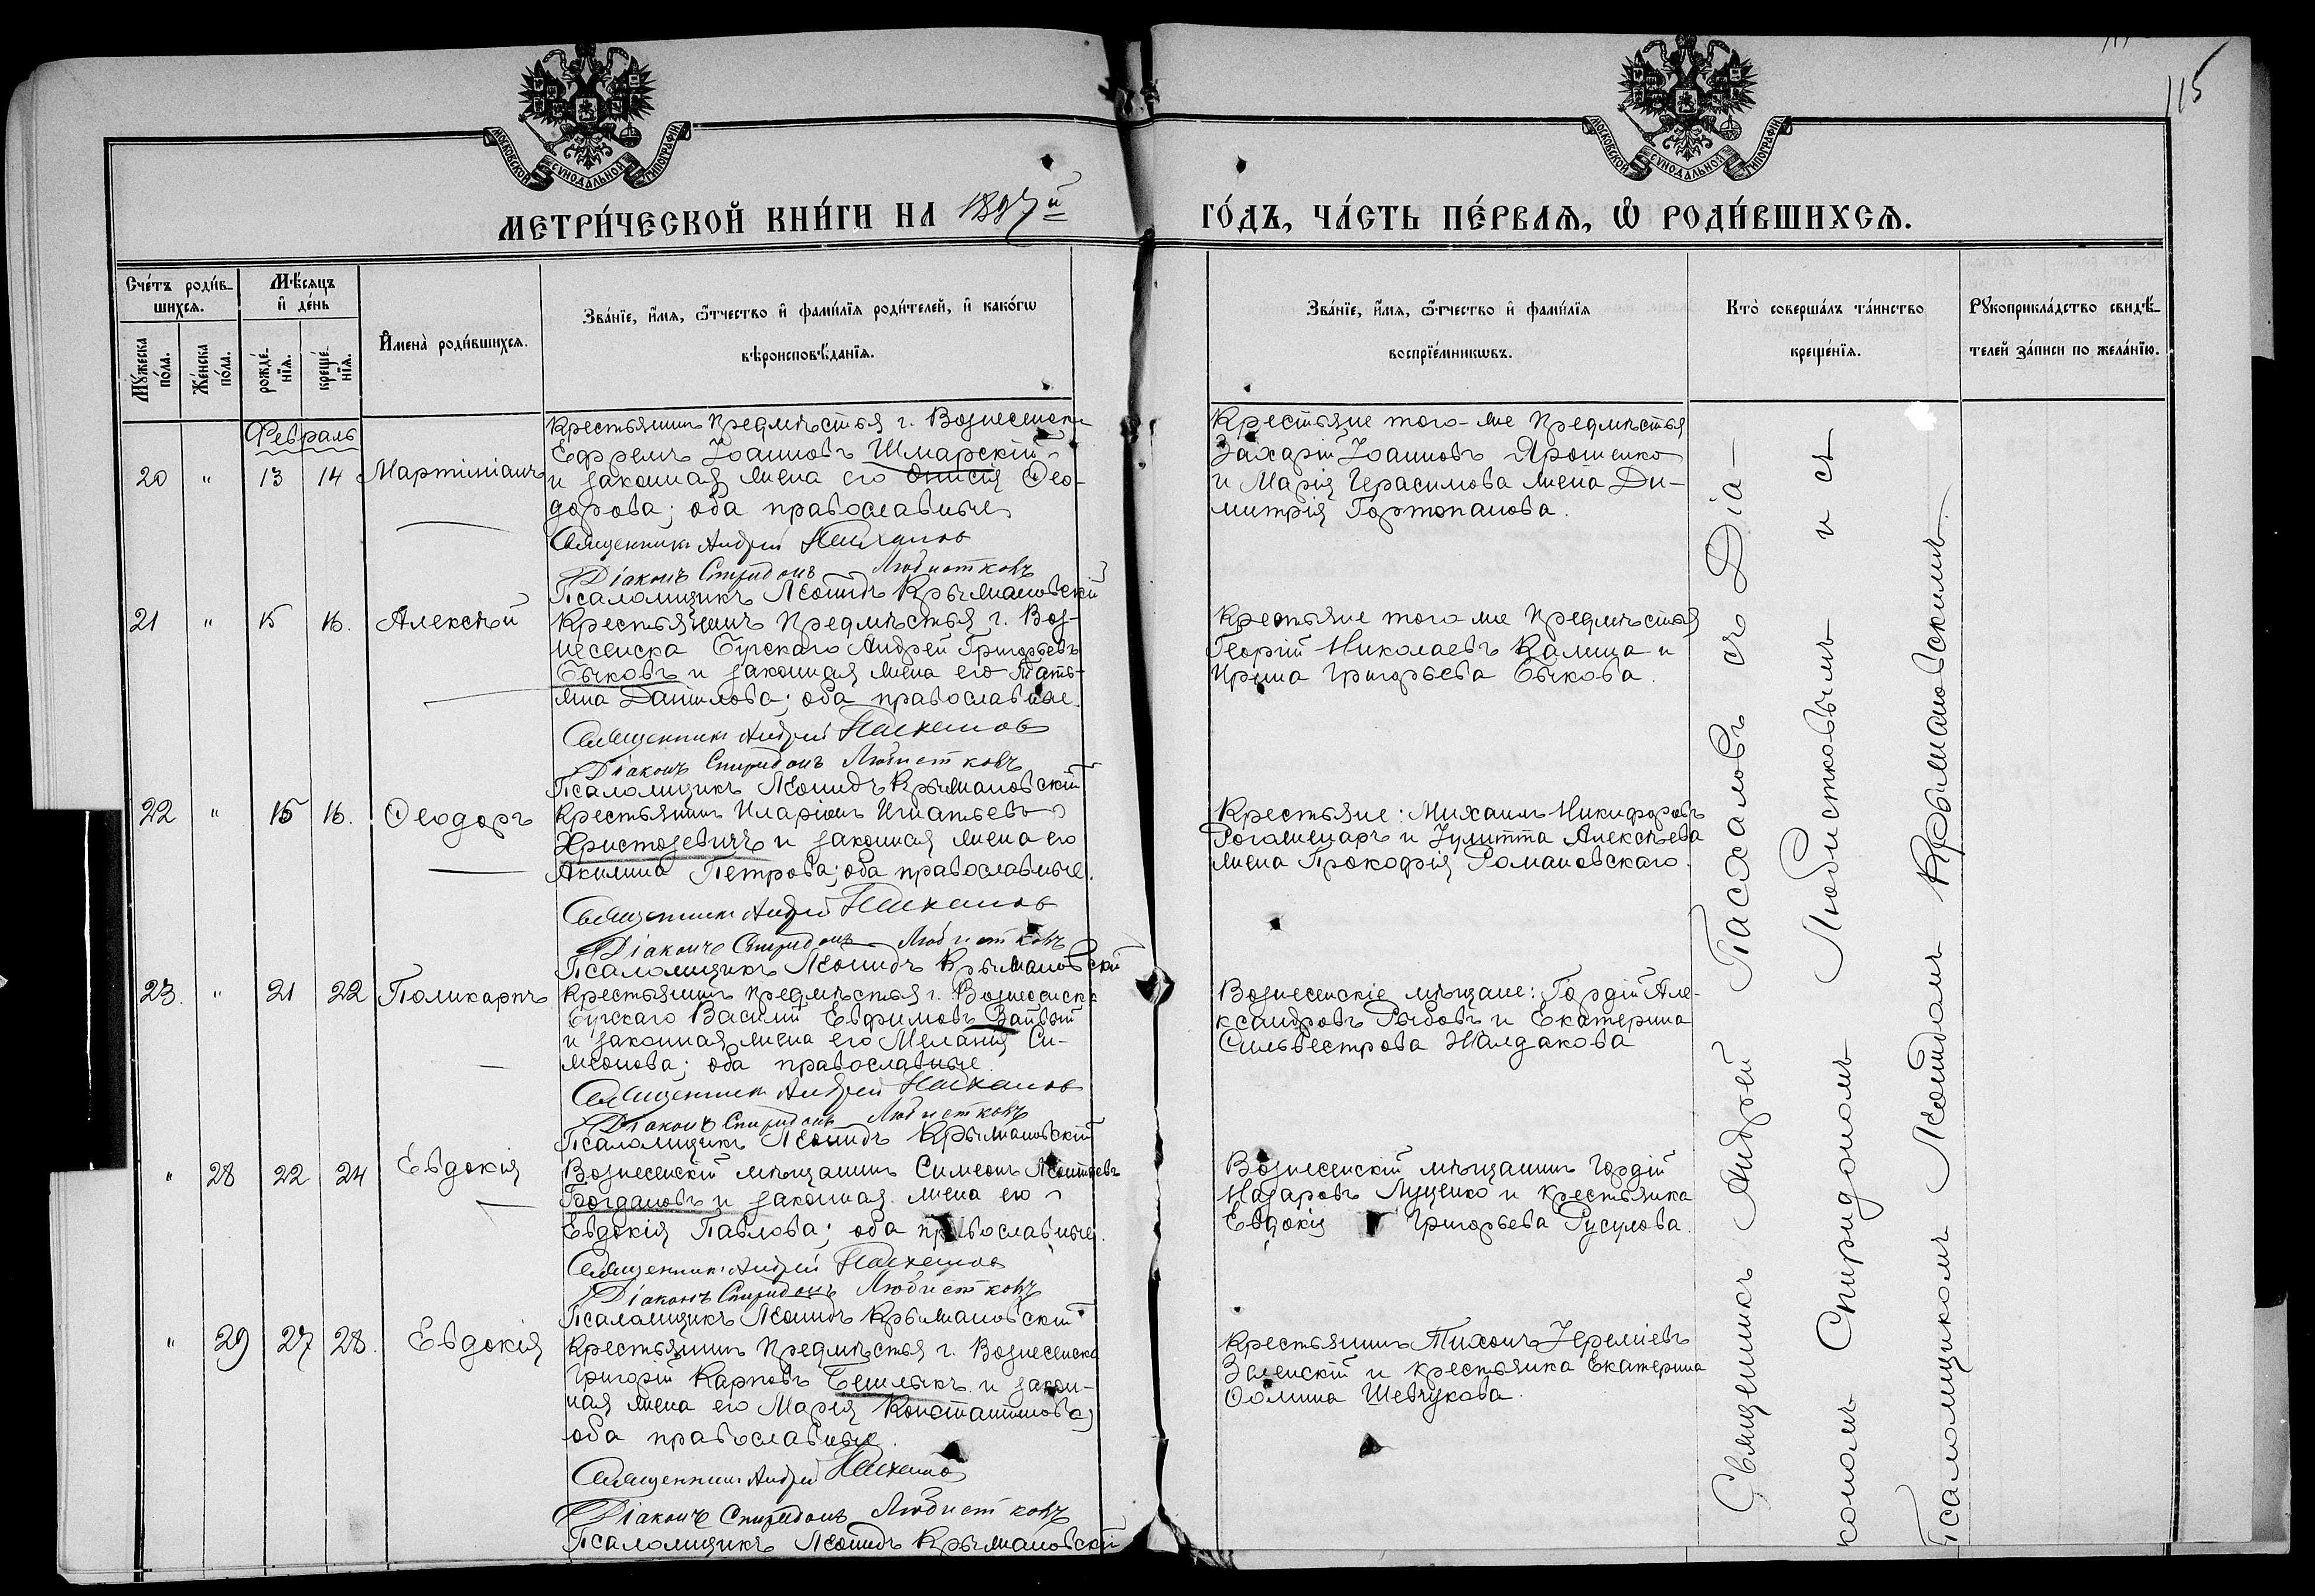 115
МОСКОВСКОЙ СѴНОДАЛЬНОЙ ТИПОГРАФІИ
МОСКОВСКОЙ СѴНОДАЛЬНОЙ ТИПОГРАФІИ
МЕТРИ́ЧЕСКОЙ КНИ́ГИ НА 1897й ГО́ДЪ, ЧА́СТЬ ПЕ́РВАѦ, Ѽ РОДИ́ВШИХСѦ.
Сче́тъ роди́в-
шихсѧ.
Мꙋ́жеска по́ла.
Же́нска по́ла.
Мѣ́сѧцъ
и҆ де́нь
рожде́-
нїѧ.
креще́-
нїѧ.
И҆мена̀ роди́вшихсѧ.
Зва́нїе, и҆́мѧ, ѻ҆́тчество и҆ фами́лїѧ роди́телей, и҆ како́гѡ
вѣроисповѣ́данїѧ.
Зва́нїе, и҆́мѧ, ѻ҆́тчество и҆ фами́лїѧ
воспрїе́мникѡвъ.
Кто̀ соверша́лъ та́инство
креще́нїѧ.
Рꙋкоприкла́дство свидѣ́-
телей за́писи по жела́нїю.
Февраль
20 " 13 14 Мартиніанъ
Крестьянинъ предмѣстья г. Вознесенска
Ефремъ Іоанновъ Шмарскій
и законная жена его Онисія Ѳео-
дорова; оба православные
Священникъ Андрей Пасхаловъ
Діаконъ Спиридонъ Любистковъ
Псаломщикъ Леонидъ Крыжановскій
Крестьяне того-же предмѣстья
Захарій Іоанновъ Ярошенко
и Марія Герасимова жена Ди-
митрія Гортопанова.
21 " 15 16. Алексѣй
Крестьянинъ предмѣстья г. Воз-
несенска Бугскаго Андрей Григорьевъ
Быковъ и законная жена его Тать-
яна Данилова; оба православные.
Священникъ Андрей Пасхаловъ
Діаконъ Спиридонъ Любистковъ
Псаломщикъ Леонидъ Крыжановскій
Крестьяне того же предмѣстья
Георгій Николаевъ Калища и
Ирина Григорьева Быкова.
22 " 15 16. Ѳеодоръ
Крестьянинъ Иларіонъ Игнатьевъ
Христозевичъ и законная жена его
Акилина Петрова; оба православные.
Священникъ Андрей Пасхаловъ
Діаконъ Спиридонъ Любистковъ
Псаломщикъ Леонидъ Крыжановскій
Крестьяне: Михаилъ Никифоровъ
и Іулитта Алексѣева
жена Прокофія Романовскаго.
23. " 21 22 Поликарпъ
Крестьянинъ предмѣстья г. Вознесенска
Бугскаго Василій Евфимовъ
и законная жена его Меланія Си-
меонова; оба православные.
Священникъ Андрей Пасхаловъ
Діаконъ Спиридонъ Любистковъ
Псаломщикъ Леонидъ Крыжановскій
Вознесенскіе мѣщане: Гордій Але-
ксандровъ Рыбовъ и Екатерина
Сильвестрова Жалдакова
" 28 22 24 Евдокія
Вознесенскій мѣщанинъ Симеонъ Леонтьевъ
Богдановъ и законная жена его
Евдокія Павлова; оба православные.
Священникъ Андрей Пасхаловъ
Діаконъ Спиридонъ Любистковъ
Псаломщикъ Леонидъ Крыжановскій
Вознесенскій мѣщанинъ Гордій
Назаровъ Луценко и крестьянка
Евдокія Григорьева Русулова.
" 29 27 28. Евдокія
Крестьянинъ предмѣстья г. Вознесенска
Григорій Карповъ Бешлыкъ и закон-
ная жена его Марія Константинова;
оба православные.
Священникъ Андрей Пасхаловъ
Діаконъ Спиридонъ Любистковъ
Псаломщикъ Леонидъ Крыжановскій
Крестьянинъ Тихонъ Іереміевъ
Зиленскій и крестьянка Екатерина
Ѳомина Шевчукова.
Священникъ Андрей Пасхаловъ съ Діа-
кономъ Спиридономъ Любистковымъ и съ
Псаломщикомъ Леонидомъ Крыжановскимъ.